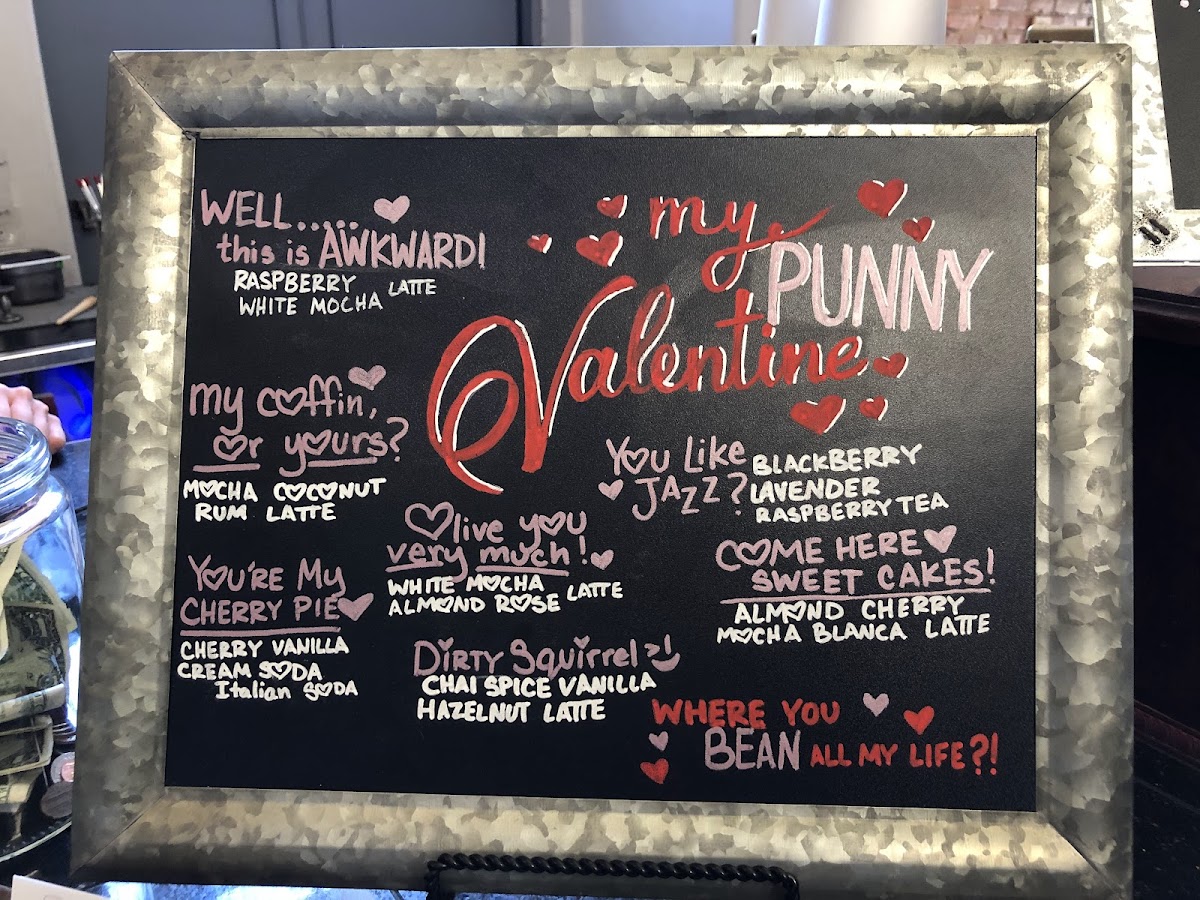 my
PUNNY
Valentine
WELL......
this is AWKWARD!
RASPBERRY LATTE
WHITE MOCHA
my coffin,
or yours?
MOCHA COCONUT
RUM LATTE
YOU'RE MY
CHERRY PIE
CHERRY VANILLA
CREAM SODA
Italian SODA
Olive you
very much!
WHITE MOCHA LATTE
ALMOND ROSE
DIRTY SQUIRREL >:)
CHAI SPICE VANILLA
HAZELNUT LATTE
YOU LIKE
JAZZ?
BLACKBERRY
LAVENDER
RASPBERRY TEA
COME HERE
SWEET CAKES!
ALMOND CHERRY
MOCHA BLANCA LATTE
WHERE YOU
BEAN ALL MY LIFE?!